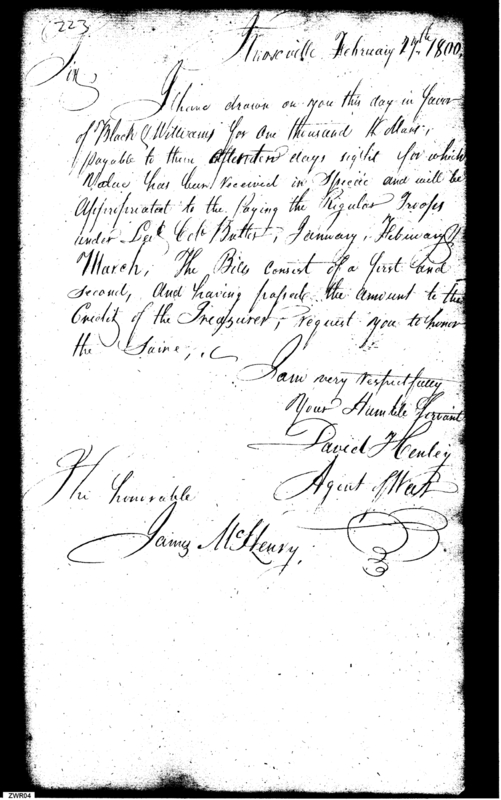 (223
Knoxville February 27th 1800.
Sir,
I have drawn on you this day in favor
of Black & Williams for One thousand Dollars,
payable to them days sight for which
Value has been received in Specie and will be
Appropriated to the paying the Regular Troops
under Col: Butler, January, February &
March; The Bills consist of a first and
second, and having passed the amount to the
Credit of the Treasurer, request you to honor
the Same,
I am very respectfully
Your Humble Servant
David Henley
Agent of War
The honorable
James McHenry.
ZWR04